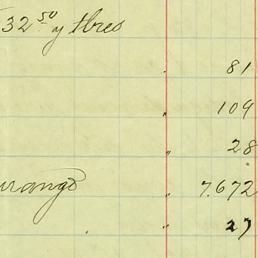 32 50 y tbres
" 81
" 109
" 28
urango " 7.672
" 27